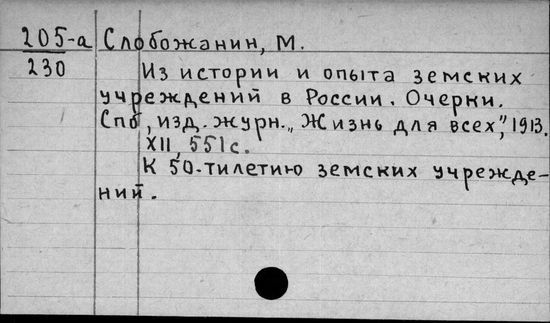 205-а Слобожанин, М.
230 Из истории и опыта земских
учреждений в России. Очерки.
Спб, изд. журн. „Жизнь для всех", 1913.
XII, 551 с.
К 50-тилетию земских учрежде-
ний.